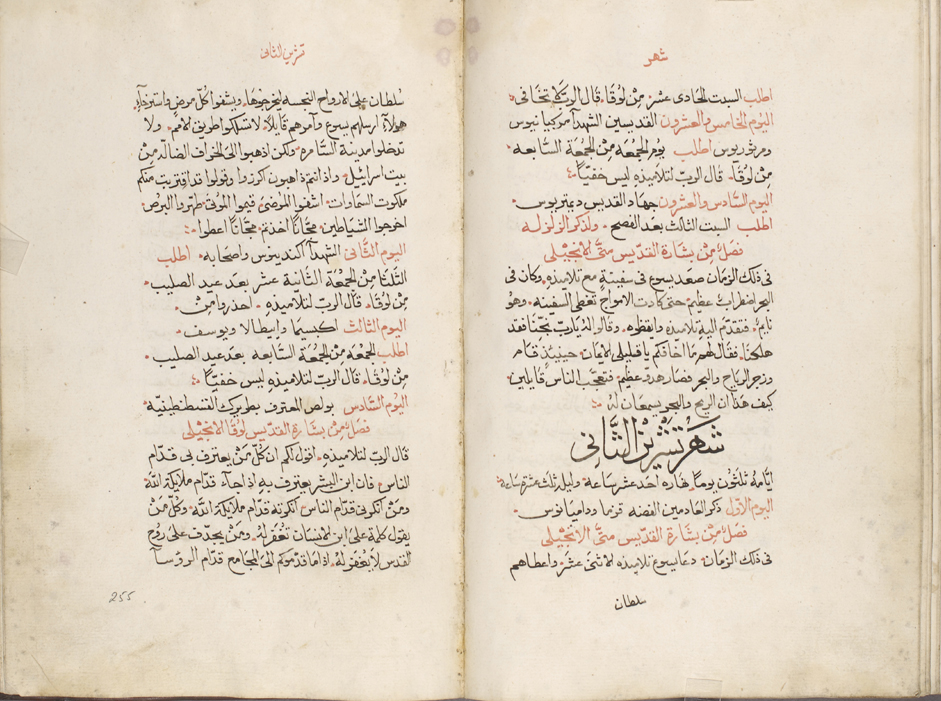 شهر
اطلب السبت الحادى عشر من لوقا. قال الرب كما تختا فى
اليوم الخامس والعشرون القديسين الشهدآ مركيانوس
ومرتوريوس اطلب يوم الجمعه من الجمعة السابعه
من لوقا قال الرب لتلاميذه ليس خفيًّا
اليوم السادس والعشرون جهاد القديس ديمتريوس
اطلب السبت الثالث بعد الفصح ولذكر الزلزله
فصل من بشارة القديس متى الانجيلى
فى ذلك الزمان صعد يسوع فى سفينة مع تلاميذه وكان فى
البحر اضطراب عظيم حتى كادت الامواج تغطى السفينه وهو
نايم فتقدم اليه تلاميذه وايقظوه وقالوا له يا رب نجّنا فقد
هلكنا فقال لهم ما اخافكم يا قليلى الايمان حينيذٍ قام
وزجر الرياح والبحر فصار هدوّ عظيم فتعجب الناس قايلين
كيف هذا ان الريح والبحر يسمعان له
شهر تشرين الثانى
ايامه ثلثون يومًا نهاره احد عشر ساعة وليله ثلث عشرة ساعة
اليوم الاول ذكر العادمين الفضه قزما وداميانوس
فصل من بشارة القديس متى الانجيلى
فى ذلك الزمان دعا يسوع تلاميذه الاثنى عشر واعطاهم
سلطان
تشرين الثانى
سلطان على الارواح النجسه ليخرجوها ويشفوا كل مرض واسترخآءٍ
هولآء ارسلهم يسوع وامرهم قايلاً لا تسلكوا طريق الامم ولا
تدخلوا مدينة السامره ولكن اذهبوا الى الخراف الضاله من
بيت اسراييل واذا انتم ذاهبون اكرزوا وقولوا قد اقتربت منكم
ملكوت السماوات اشفوا المرضى قيموا الموتى طهروا البرص
اخرجوا الشياطين مجانًا اخذتم مجانًا اعطوا
اليوم الثانى الشهدآ اكندينوس واصحابه اطلب
الثلثا من الجمعة الثانية عشر بعد عيد الصليب
من لوقا قال الرب لتلاميذه احذروا من
اليوم الثالث اكبسيما وايطالا ويوسف
اطلب الجمعه من الجمعة السابعه بعد عيد الصليب
من لوقا قال الرب لتلاميذه ليس خفيًّا
اليوم السادس بولص المعترف بطريرك القسطنطينية
فصل من بشارة القديس لوقا الانجيلى
قال الرب لتلاميذه اقول لكم ان كل من يعترف بى قدام
الناس فان ابن البشر يعترف به اذا جآء قدام ملايكة الله
ومن انكرنى قدام الناس انكرته قدام ملايكة الله وكل من
يقول كلمة على ابن الانسان تغفر له ومن يجدف على روح
القدس لا يغفر له اذا ما قدموكم الى المجامع قدام الروسآ
255